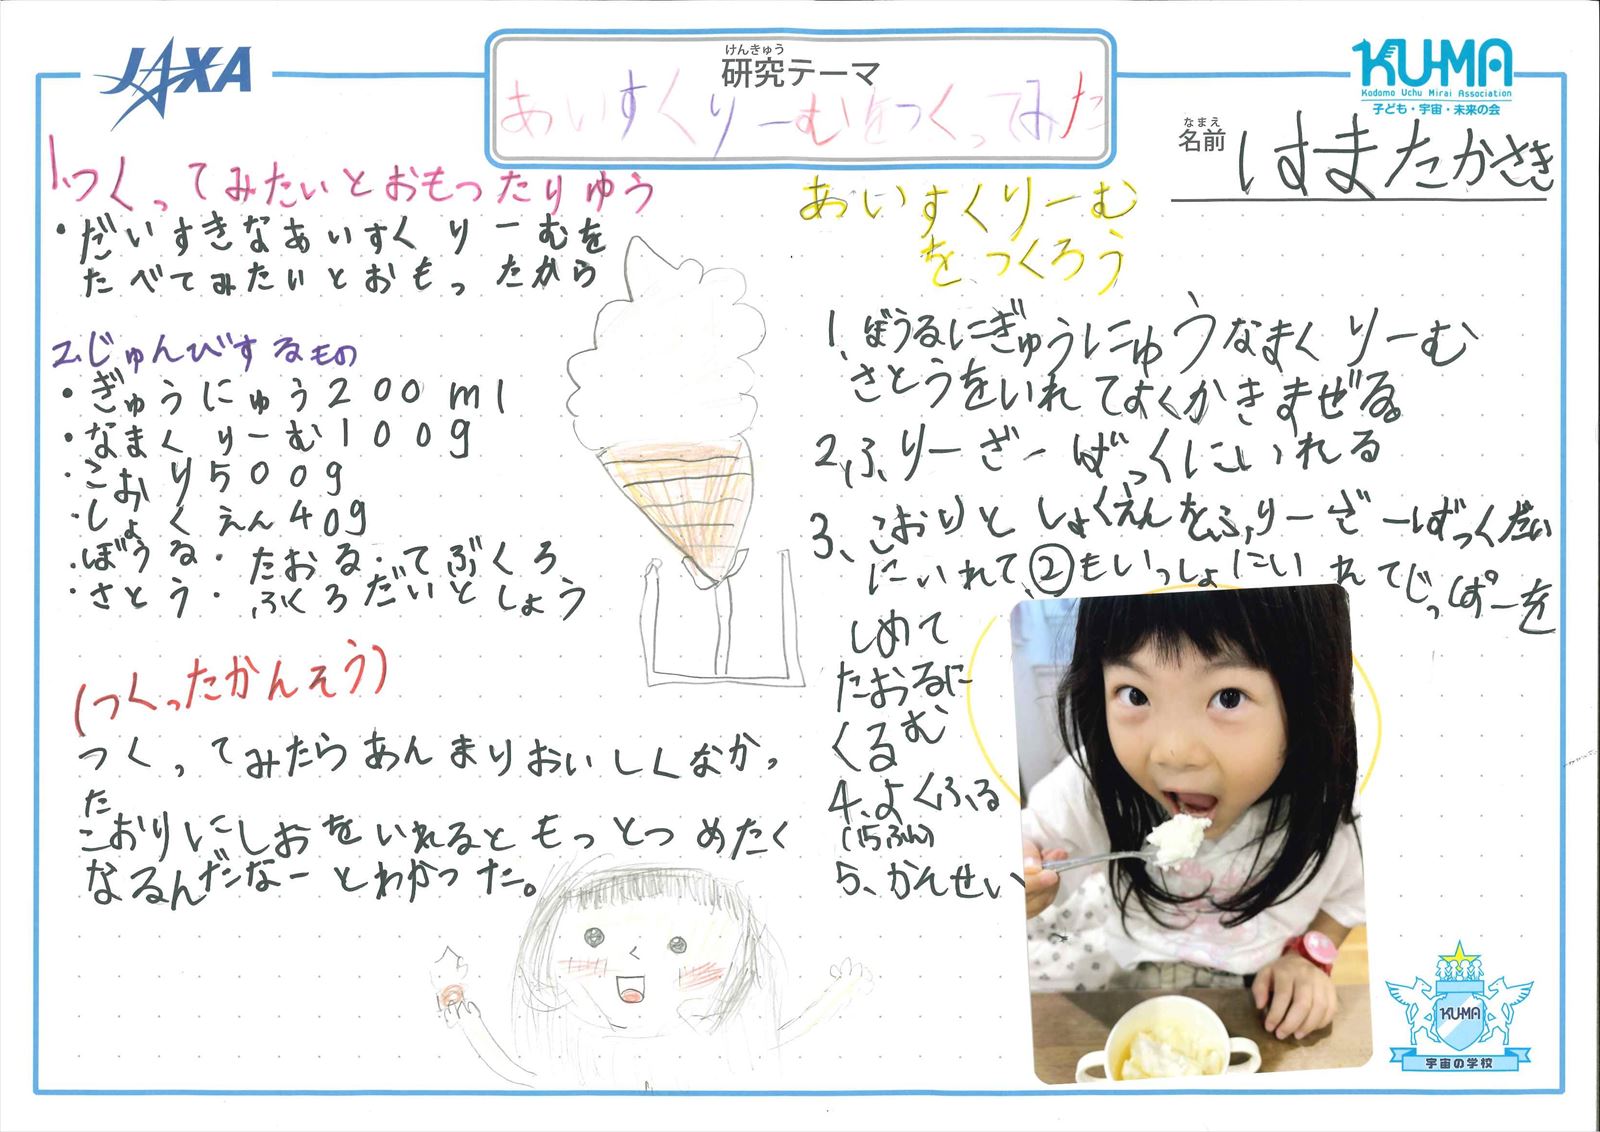 JAXA
けんきゅう
研究テーマ
あいすくりーむをつくってみた
KU-MA
Kodomo Uchu Mirai Association
子ども・宇宙・未来の会
なまえ
名前
はまたかさき
1.つくってみたいとおもったりゆう
・だいすきなあいすくりーむを
たべてみたいとおもったから
2.じゅんびするもの
・ぎゅうにゅう200ml
・なまくりーむ100g
・こおり500g
・しょくえん40g
・ぼうる・たおる・てぶくろ
・さとう・ふくろだいとしょう
(つくったかんそう)
つくってみたらあんまりおいしくなかっ
た
こおりにしおをいれるともっとつめたく
なるんだなーとわかった。
あいすくりーむ
をつくろう
1、ぼうるにぎゅうにゅうなまくりーむ
さとうをいれてよくかきまぜる。
2、ふりーざーばっくにいれる
3、こおりとしょくえんをふりーざーばっくだい
にいれて②もいっしょにいれてじっぱーを
しめて
たおるに
くるむ
4、よくふる
(15ふん)
5、かんせい
KU-MA
宇宙の学校